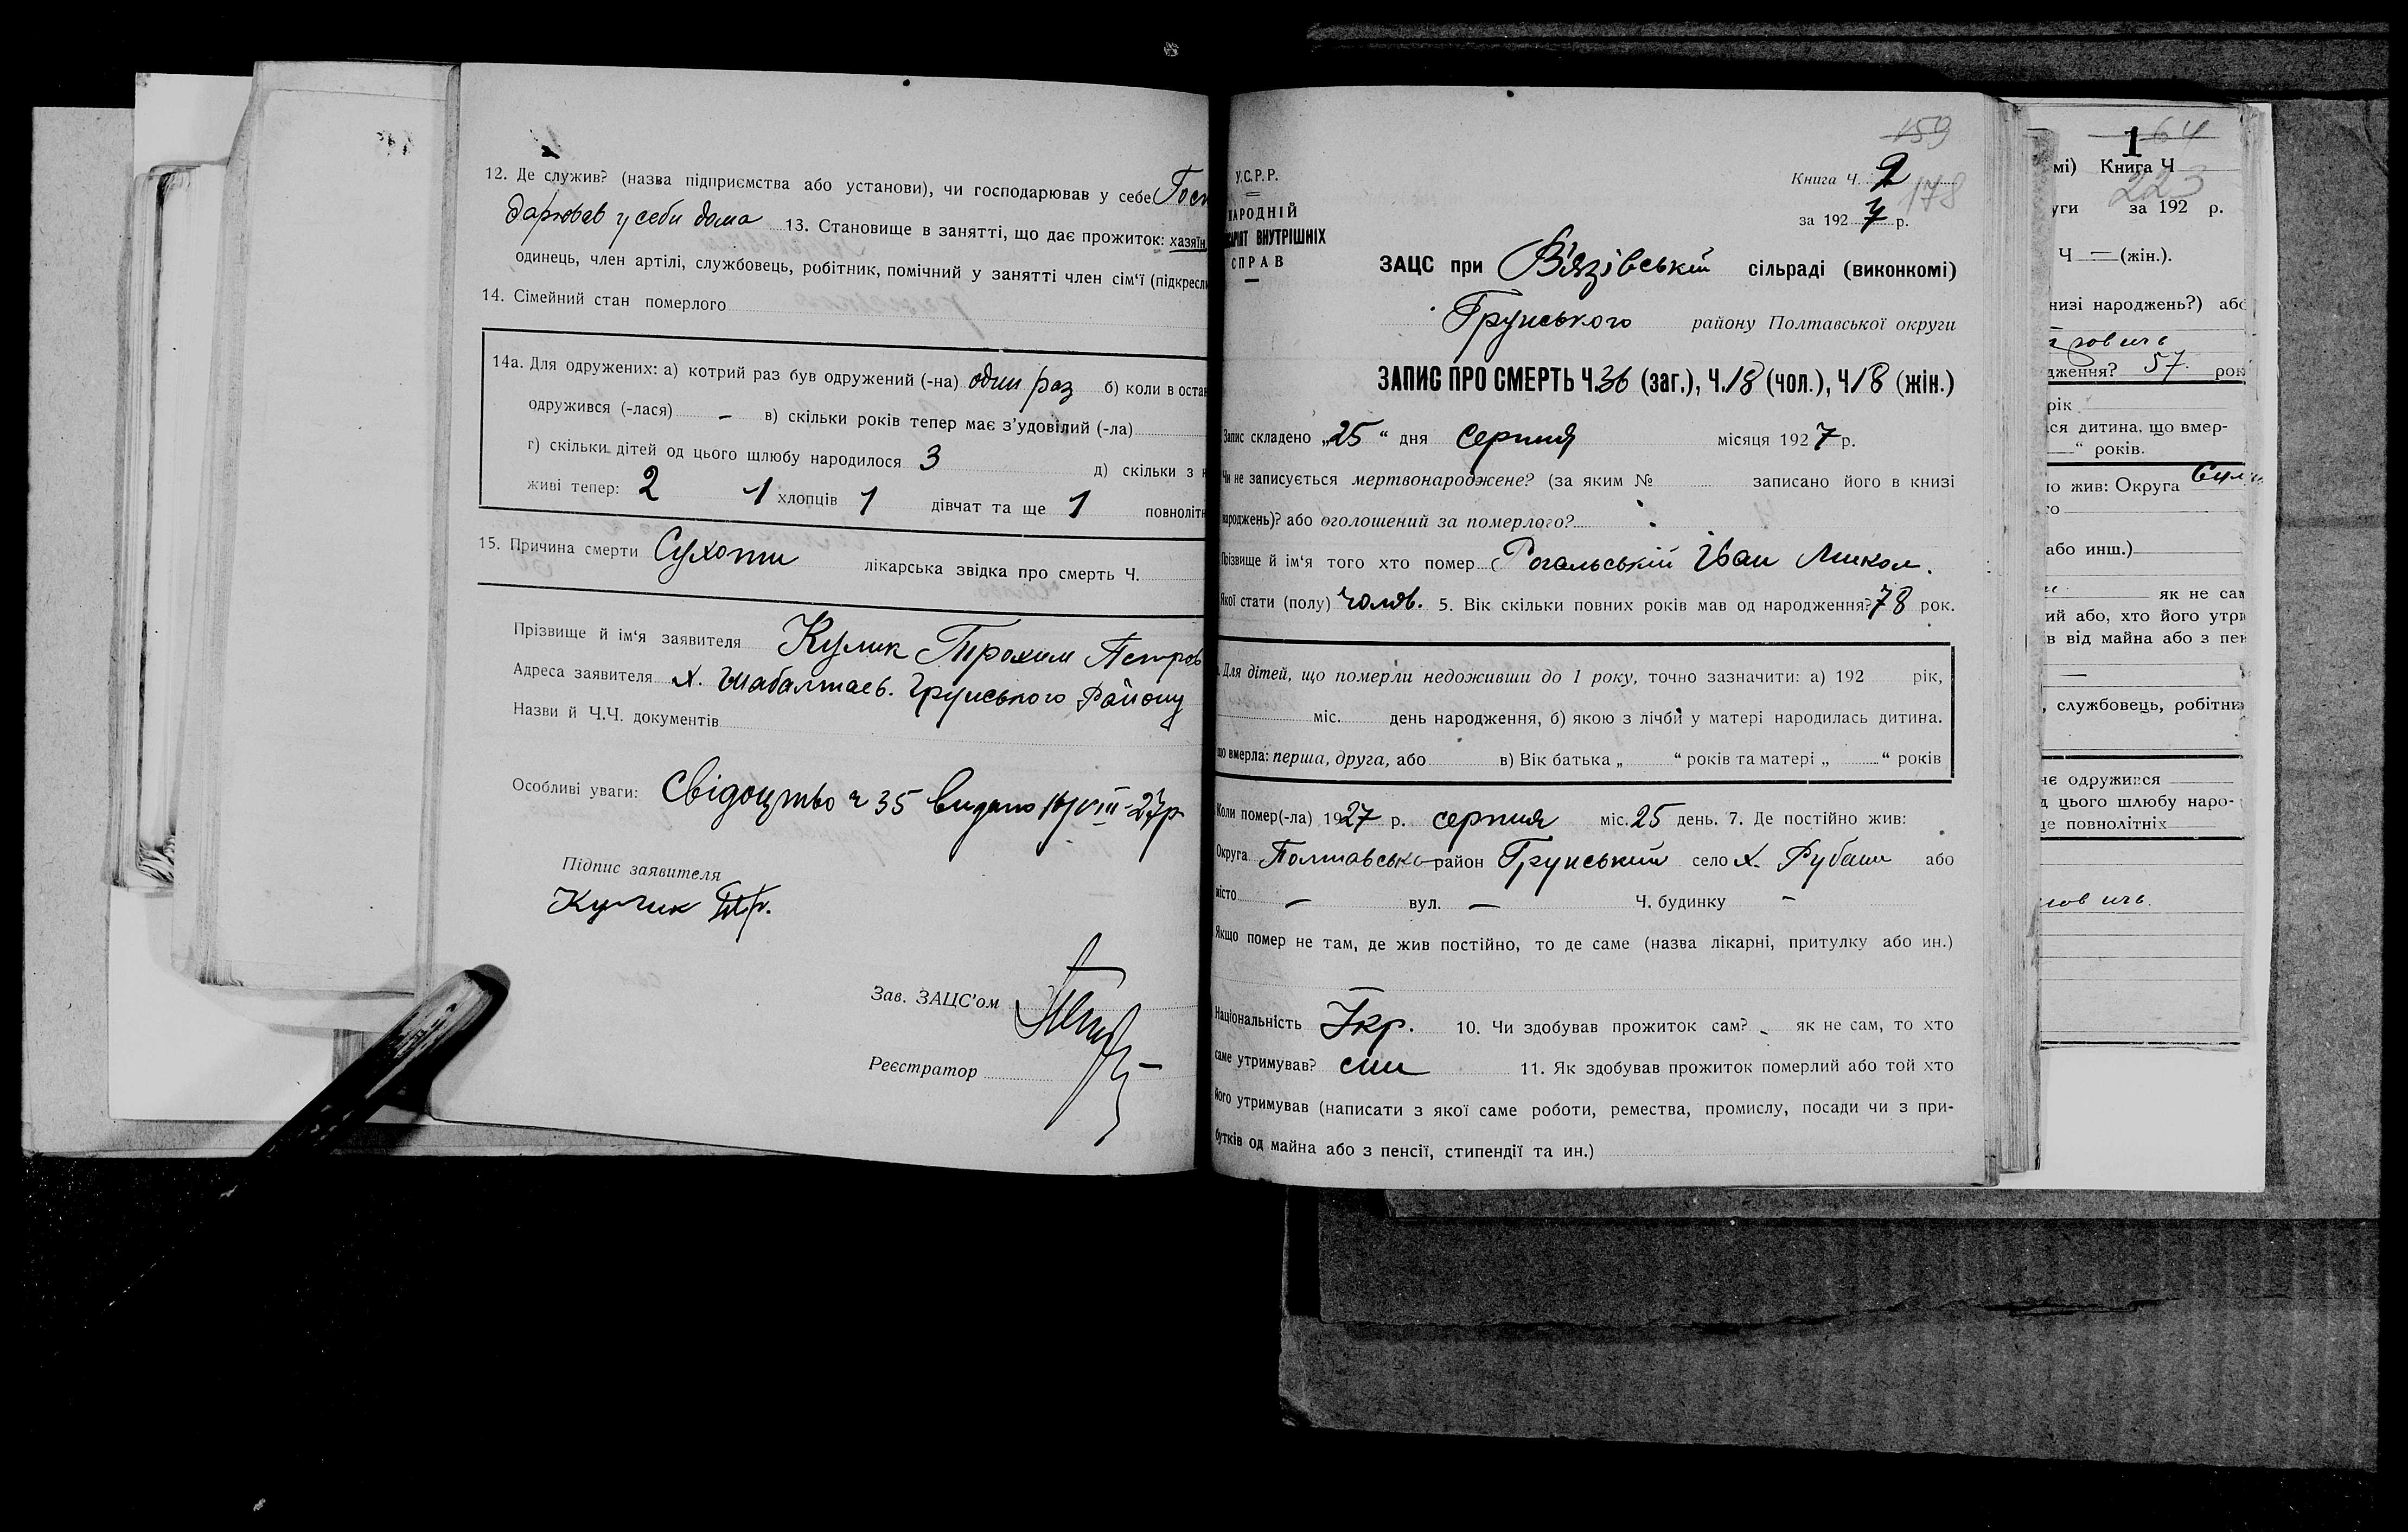 12. Де служив? (назва підприємства або установи), чи господарював у себе Госп
дарював у себи дома 13. Становище в занятті, що дає прожиток: хазяїн,
одинець, член артілі, службовець, робітник, помічний у занятті член сім‘ї (підкресли
14. Сімейний стан померлого
14а. Для одружених: а) котрий раз був одружений (-на) один раз б) коли в остан
одружився (-лася) — в) скільки років тепер має з’удовілий (-ла)
г) скільки дітей од цього щлюбу народилося 3 д) скільки з н
живі тепер: 2 1 хлопців 1 дівчат та ще 1 повноліт
15. Причина смерти Сухоти лікарська звідка про смерть Ч.
Прізвище й ім‘я заявителя Кулик Трохим Петров
Адреса заявителя х. Шабалтаєв. Грунського Району
Назви й Ч.Ч. документів
Особливі уваги: Свідоцтво ч 35 видано VIII-27р
Підпис заявителя
Кулик Тр.
Зав. ЗАЦС’ом
Реєстратор
159
178
У.С.Р.Р.
НАРОДНІЙ
ВНУТРІШНІХ
СПРАВ
Книга Ч. 2
за 1927 р.
ЗАЦС при В'язівській сільраді (виконкомі)
Грунського району Полтавської округи
ЗАПИС ПРО СМЕРТЬ Ч.36 (заг.), Ч.18 (чол.), Ч18 (жін.)
Запис складено „25“ дня серпня місяця 1927 р.
Чи не записується мертвонароджене? (за яким № записано його в книзі
народжень)? або оголошений за померлого?
Прізвище й ім‘я того хто помер Рогальський Іван Микол.
Якої стати (полу) чолов. 5. Вік скільки повних років мав од народження? 78 рок.
Для дітей, що померли недоживши до 1 року, точно зазначити: а) 192 рік,
міс. день народження, б) якою з лічби у матері народилась дитина.
що вмерла: перша, друга, або в) Вік батька „ “ років та матері „ “ років
Коли помер(-ла) 1927 р. серпня міс. 25 день. 7. Де постійно жив:
Округа Полтавська район Грунський село х. Рубани або
місто — вул. — Ч. будинку -
Якщо помер не там, де жив постійно, то де саме (назва лікарні, притулку або ин.)
Національність Укр. 10. Чи здобував прожиток сам? - як не сам, то хто
саме утримував? син 11. Як здобував прожиток померлий або той хто
його утримував (написати з якої саме роботи, ремества, промислу, посади чи з при-
бутків од майна або з пенсії, стипендії та ин.)
1 64
мі) Книга Ч
223
уги за 192 р.
Ч — (жін.).
низі народжень?) або
дження? 57. рок
рік
ся дитина, що вмер-
—“ років.
о жив: Округа
го
або инш.)
як не сам
ий або, хто його утри
в від майна або з пен
—
, службовець, робітни
не одружився
д цього шлюбу наро-
ще повнолітніх